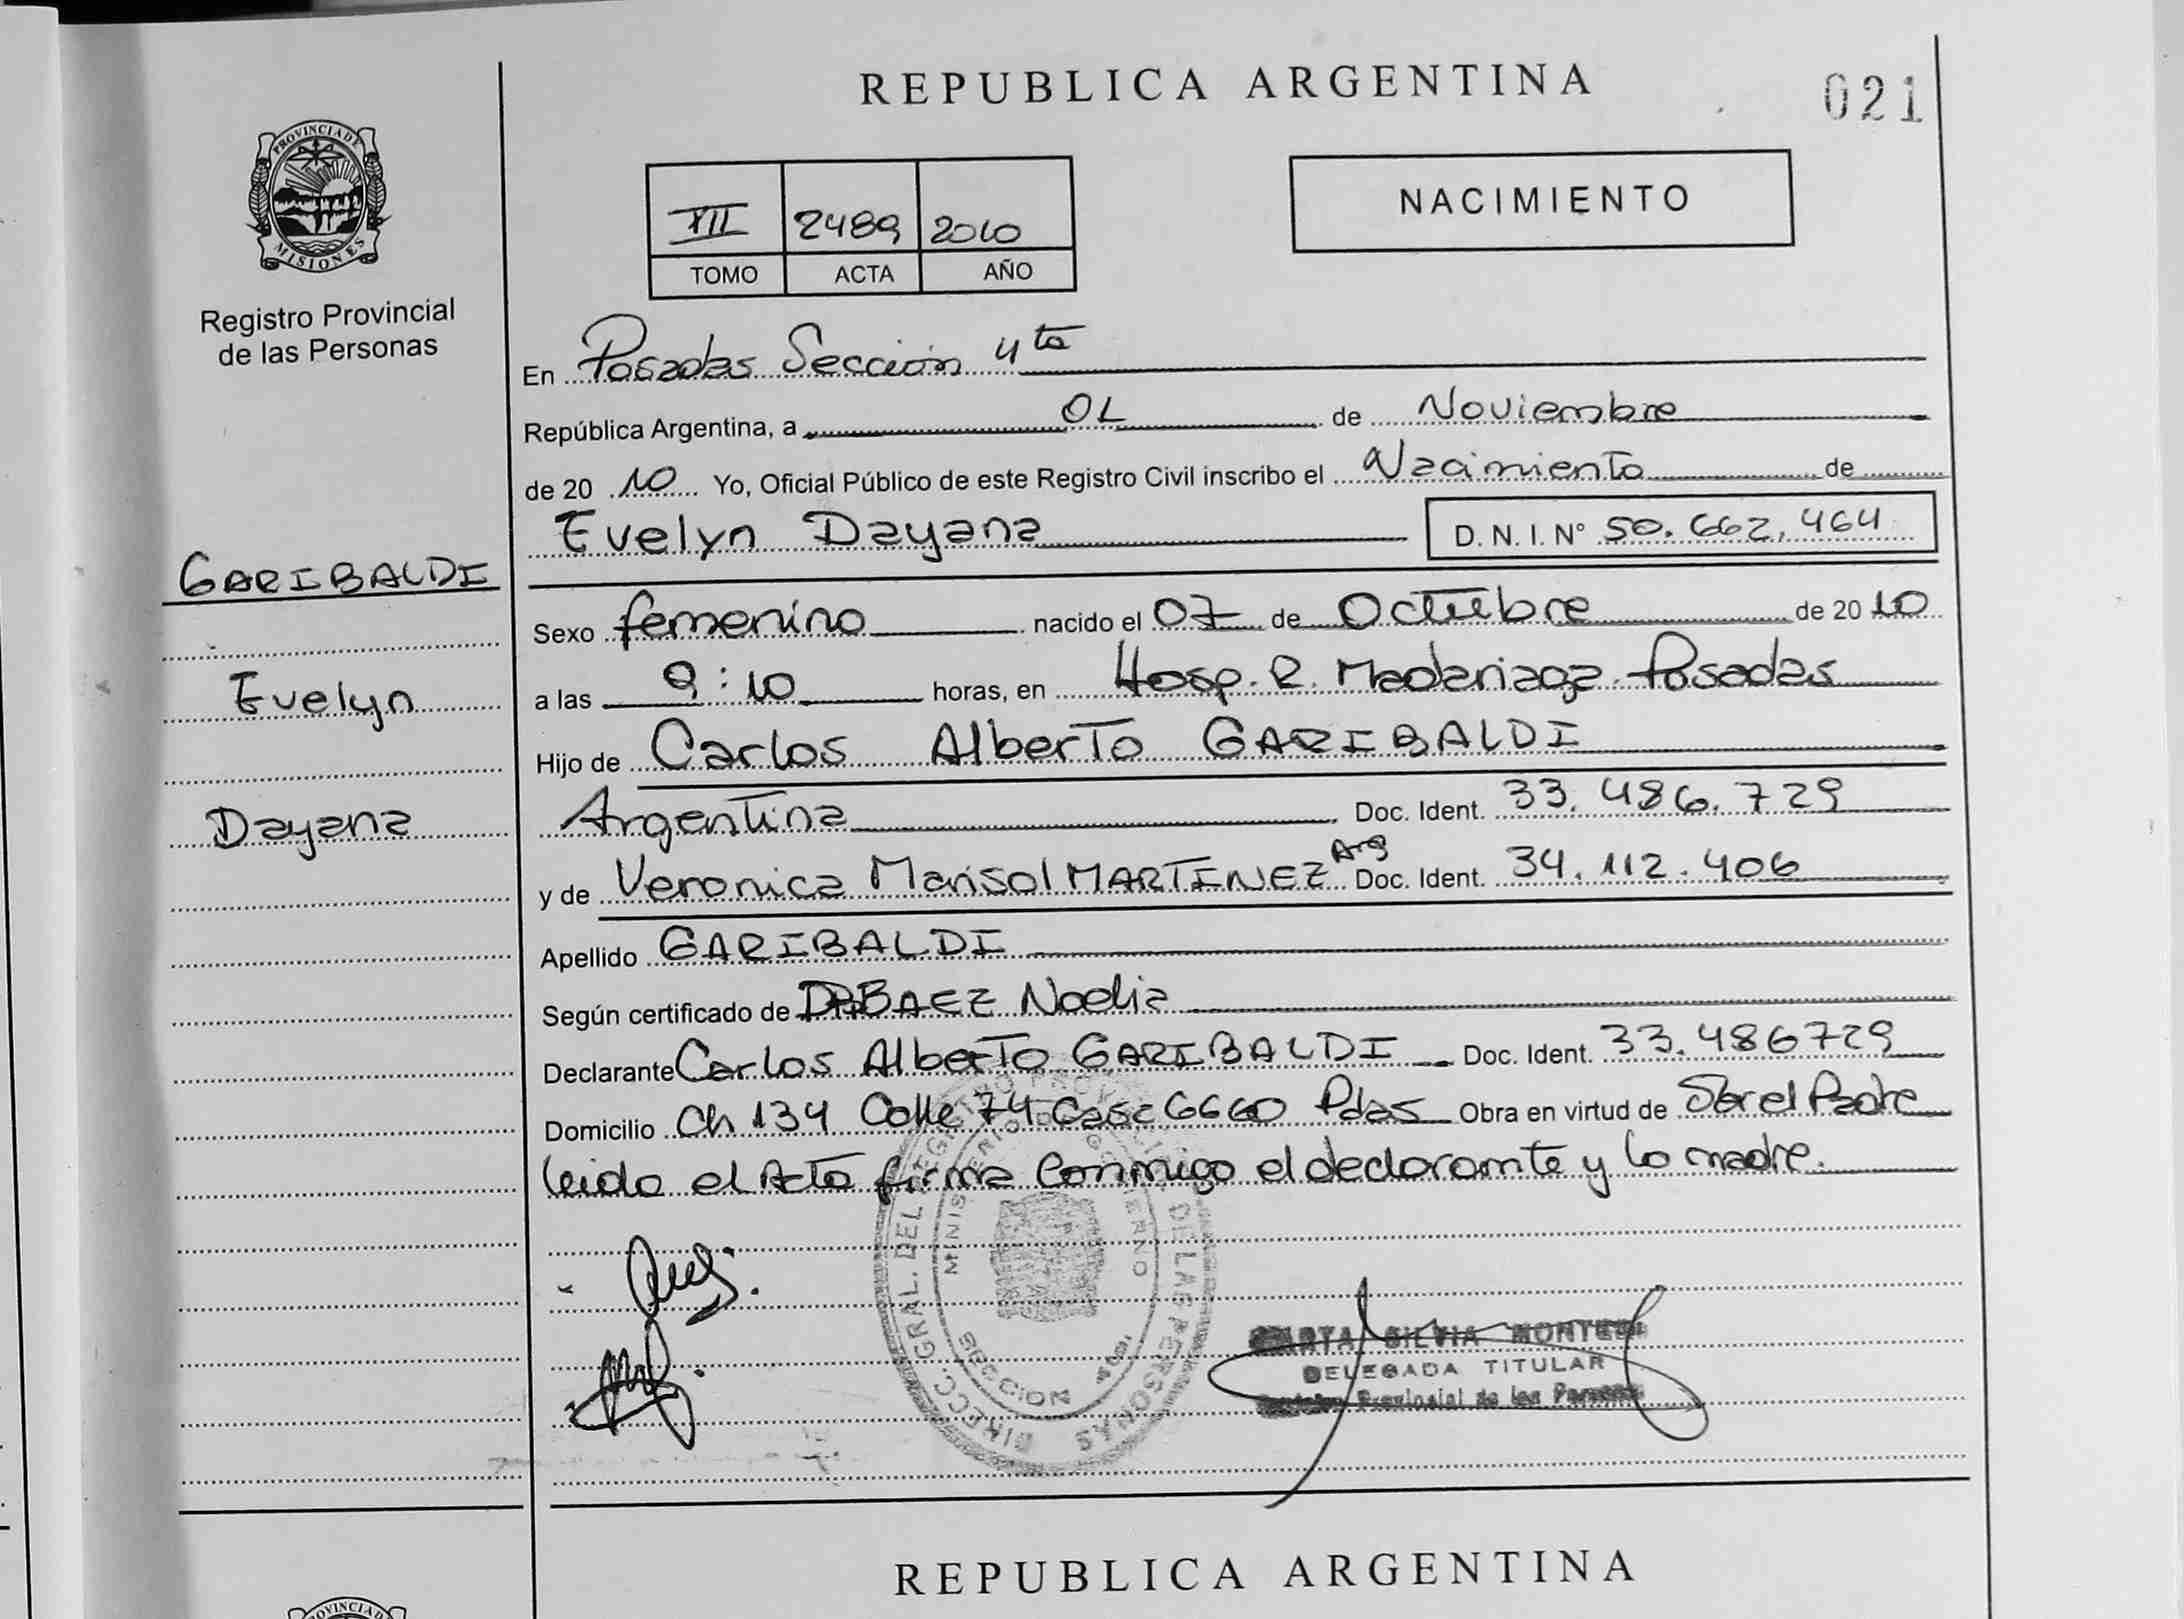 REPUBLICA ARGENTINA
021
PROVINCIA DE
MISIONES
Registro Provincial
de las Personas
XII 2489 2010
TOMO ACTA AÑO
NACIMIENTO
En Posadas Sección 4ta
República Argentina, a 01 de Noviembre
de 20 10 Yo, Oficial Público de este Registro Civil inscribo el Nacimiento de
Evelyn Dayana D. N. I. Nº 50.662.464
GARIBALDI
Evelyn
Dayana
Sexo femenino nacido el 07 de Octubre de 20 10
a las 9:10 horas, en Hosp. R. Madariaga Posadas
Hijo de Carlos Alberto GARIBALDI
Argentina Doc. Ident. 33.486.729
y de Veronica Marisol MARTINEZ Arg Doc. Ident. 34.112.406
Apellido GARIBALDI
Según certificado de BAEZ Noelia
Declarante Carlos Alberto GARIBALDI Doc. Ident. 33.486729
Domicilio Ch 134 Calle 74 Casa 6660 Pdas Obra en virtud de Ser el Padre
leido el Acta firma conmigo el declarante y la madre.
DIRECC. GRAL. DEL REGISTRO PROVINCIAL DE LAS PERSONAS
MINISTERIO DE GOBIERNO
SECCION
SILVIA
DELEGADA TITULAR
Provincial de las Personas
REPUBLICA ARGENTINA
PROVINCIA